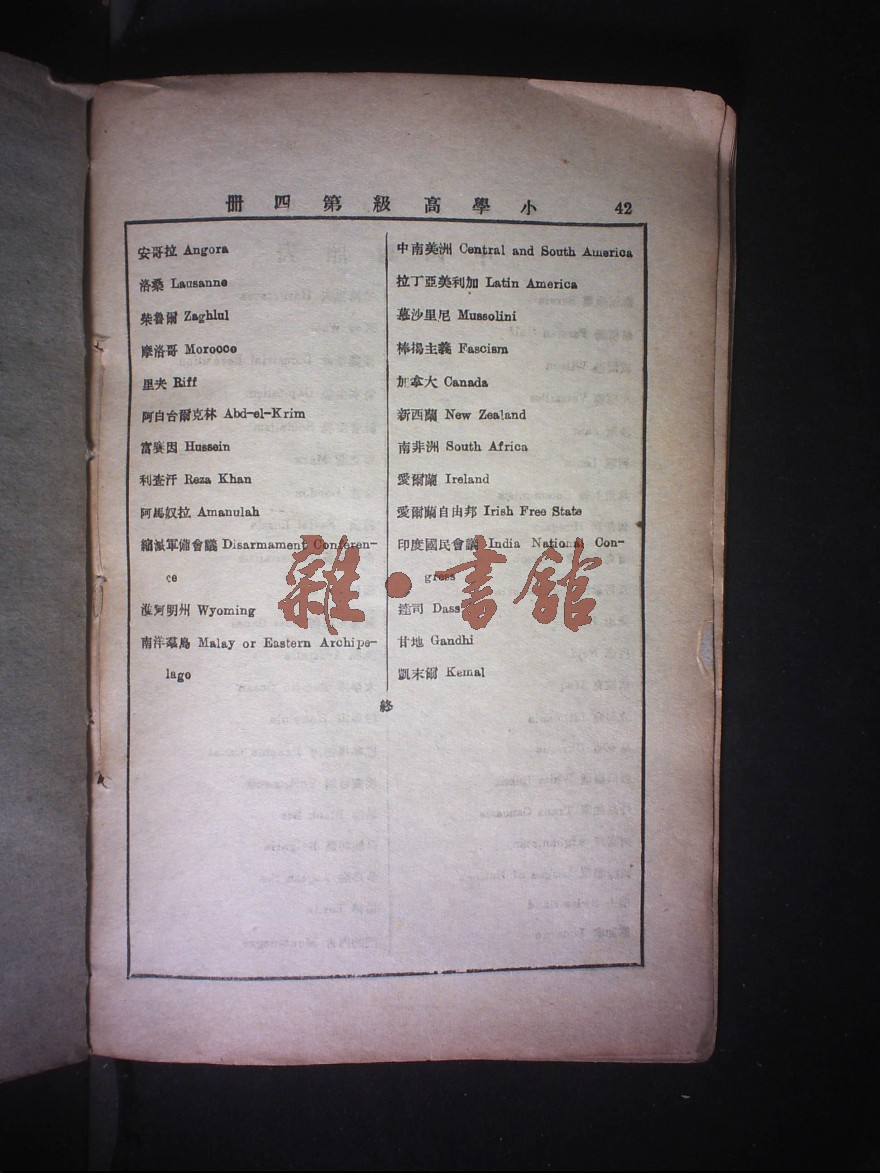 冊四第級高學小 42
安哥拉 Angora
洛桑 Lausanne
柴魯爾 Zaghlul
摩洛哥 Morocco
里夫 Riff
阿白台爾克林 Abd-el-Krim
富賽因 Hussein
利查汗 Reza Khan
阿馬奴拉 Amanulah
縮減軍備會議 Disarmament Conferen-
ce
淮河明州 Wyoming
南洋羣島 Malay or Eastern Archipe-
lago
中南美洲 Central and South America
拉丁亞美利加 Latin America
慕沙里尼 Mussolini
棒場主義 Fascism
加拿大 Canada
新西蘭 New Zealand
南非洲 South Africa
愛爾蘭 Ireland
愛爾蘭自由邦 Irish Free State
印度國民會議 India National Con-
gress
達司 Dass
甘地 Gandhi
凱末爾 Kemal
終
雜·書館